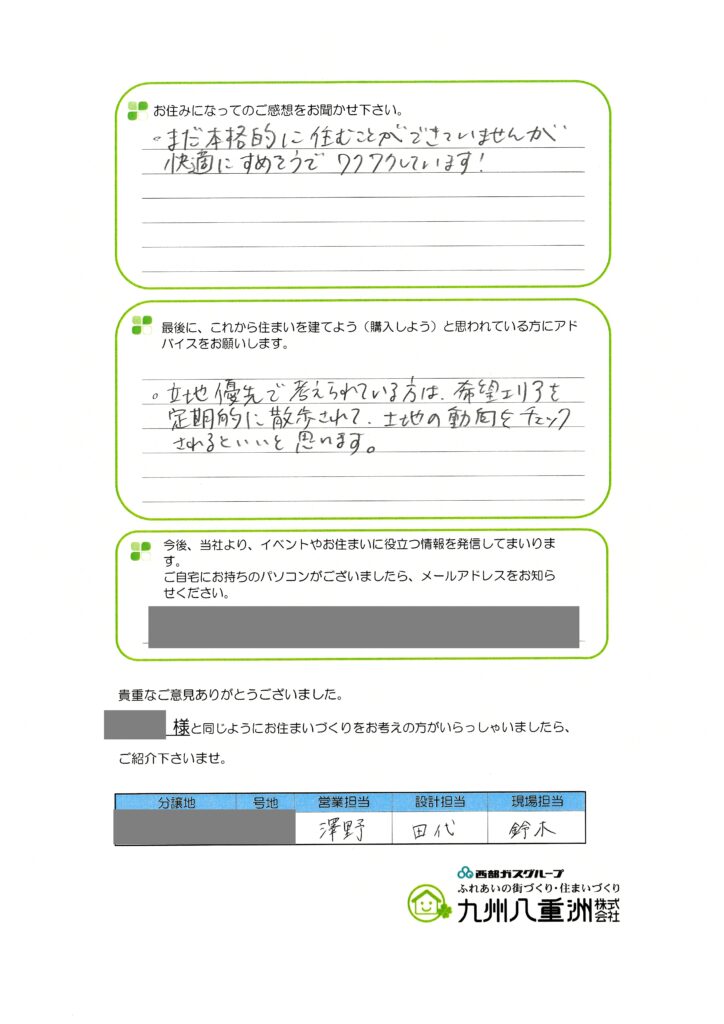 お住みになってのご感想をお聞かせ下さい。
。まだ本格的に住むことができていませんが
快適にすめそうでワクワクしています！
最後に、これから住まいを建てよう（購入しよう）と思われている方にアド
バイスをお願いします。
。立地優先で考えられている方は、希望エリアを
定期的に散歩されて、土地の動向をチェック
されるといいと思います。
今後、当社より、イベントやお住まいに役立つ情報を発信してまいりま
す。
ご自宅にお持ちのパソコンがございましたら、メールアドレスをお知ら
せください。
貴重なご意見ありがとうございました。
様と同じようにお住まいづくりをお考えの方がいらっしゃいましたら、
ご紹介下さいませ。
分譲地 号地 営業担当 設計担当 現場担当
澤野 田代 鈴木
西部ガスグループ
ふれあいの街づくり・住まいづくり
九州八重洲株式会社